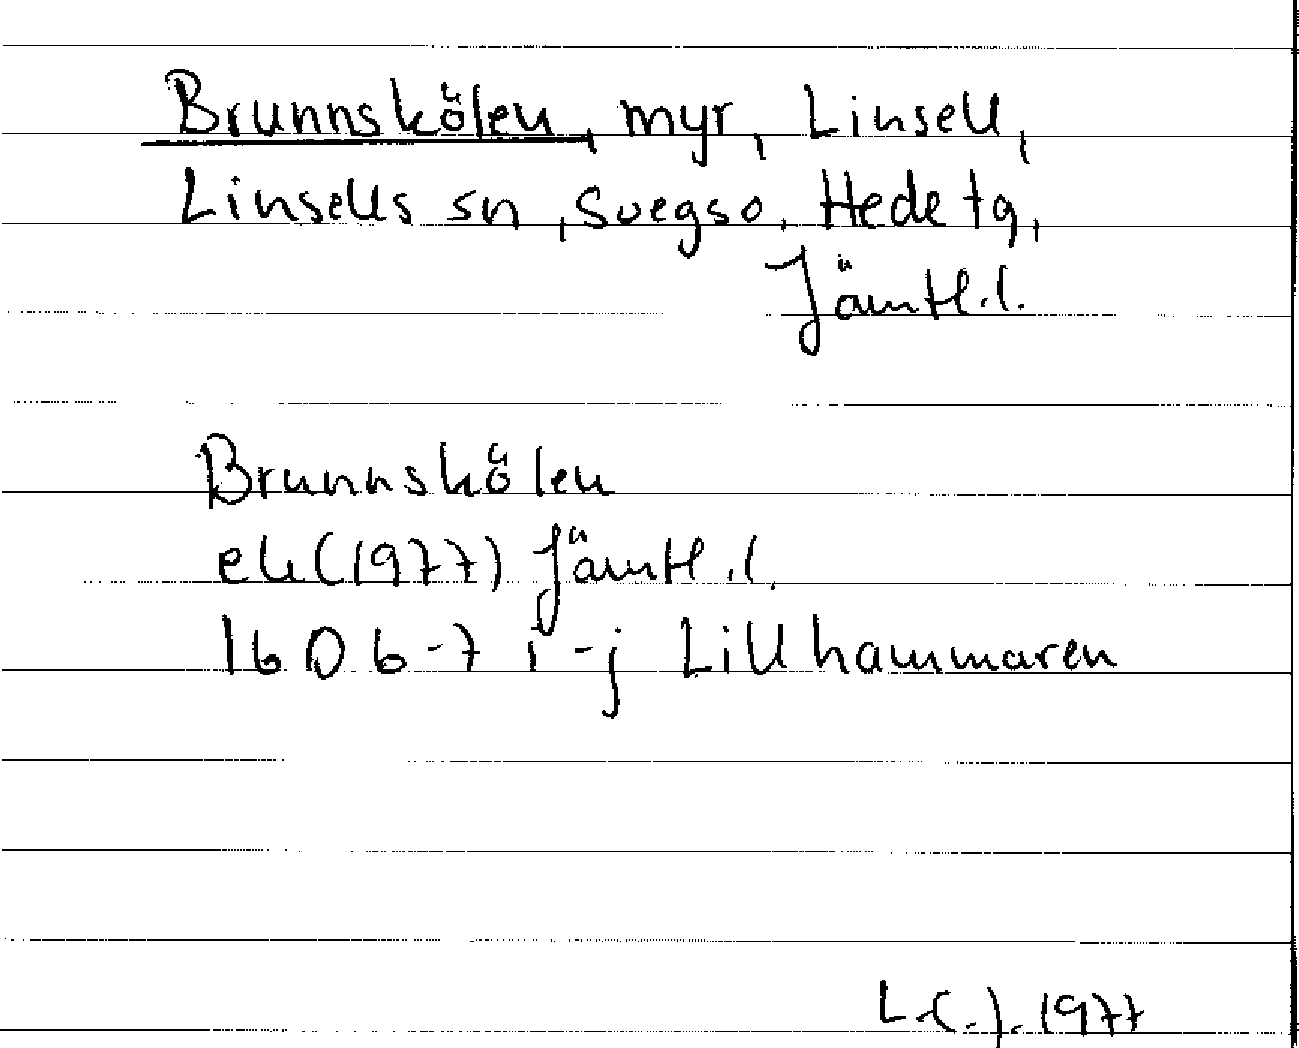 Brunnskölen, myr, Linsell,
Linsells sn, Svegs o. Hede tg,
Jämtl. l.
Brunnskölen
ek (1977) Jämtl. l.
16 D 6-7 i-j Lillhammaren
1977